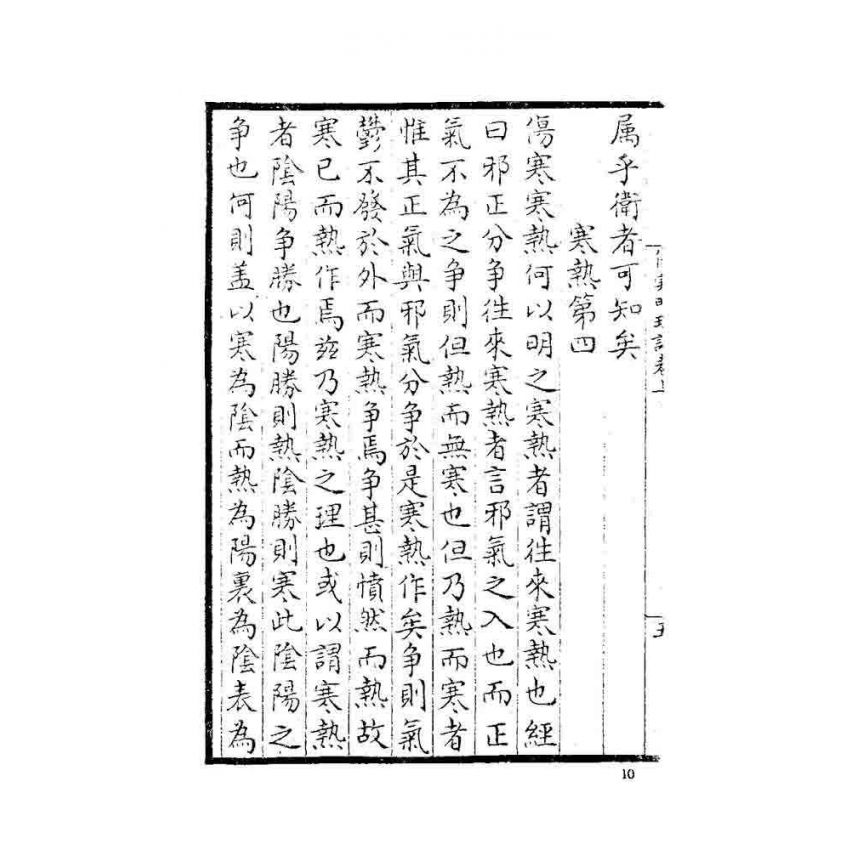 属乎衛者可知矣
寒熱第四
傷寒寒熱何以明之寒熱者謂徃來寒熱也經
曰邪正分争徃來寒熱者言邪氣之入也而正
氣不為之争則但熱而無寒也但乃熱而寒者
惟其正氣與邪氣分争於是寒熱作矣争則氣
欝不發於外而寒熱争焉争甚則憤然而熱故
寒已而熱作焉兹乃寒熱之理也或以謂寒熱
者陰陽争勝也陽勝則熱陰勝則寒此陰陽之
争也何則盖以寒為陰而熱為陽裏為陰表為
10